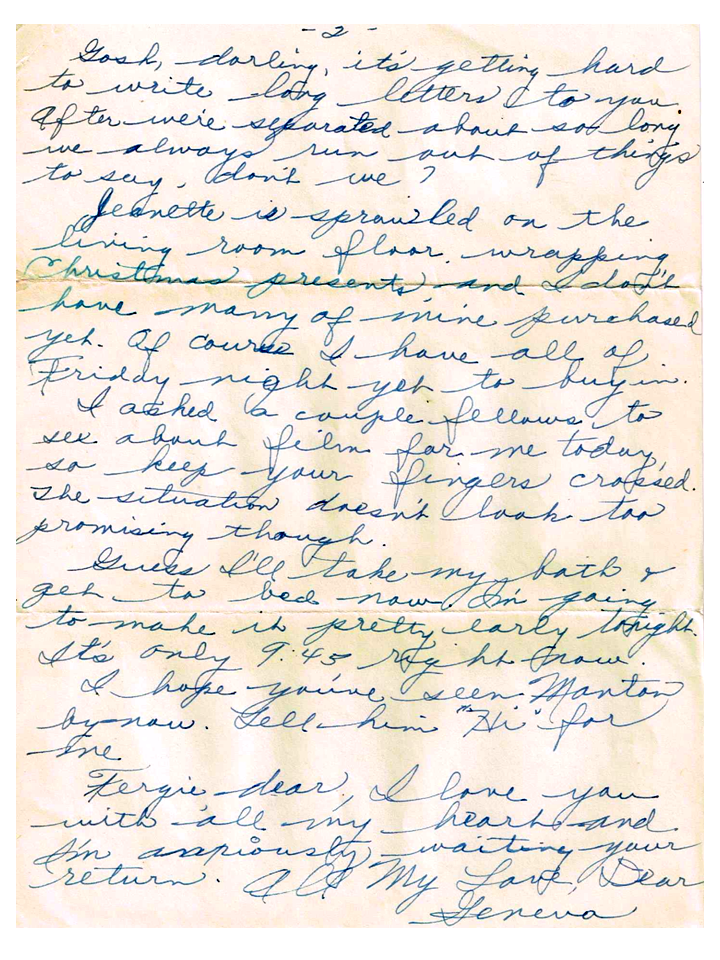 -2-
Gosh, darling, it's getting hard
to write long letters to you.
After we're separated about so long
we always run out of things
to say, don't we?
Jeanette is sprawled on the
living room floor, wrapping
Christmas presents and I don't
have many of mine purchased
yet. Of course I have all of
Friday night yet to buy in.
I asked a couple fellows to
see about film for me today,
so keep your fingers crossed.
The situation doesn't look too
promising though.
Guess I'll take my bath &
get to bed now. I'm going
to make it pretty early tonight.
It's only 9:45 right now.
I hope you've seen Manton
by now. Tell him "Hi" for
me
Fergie dear, I love you
with all my heart and
I'm anxiously waiting your
return. All My Love, Dear
Geneva